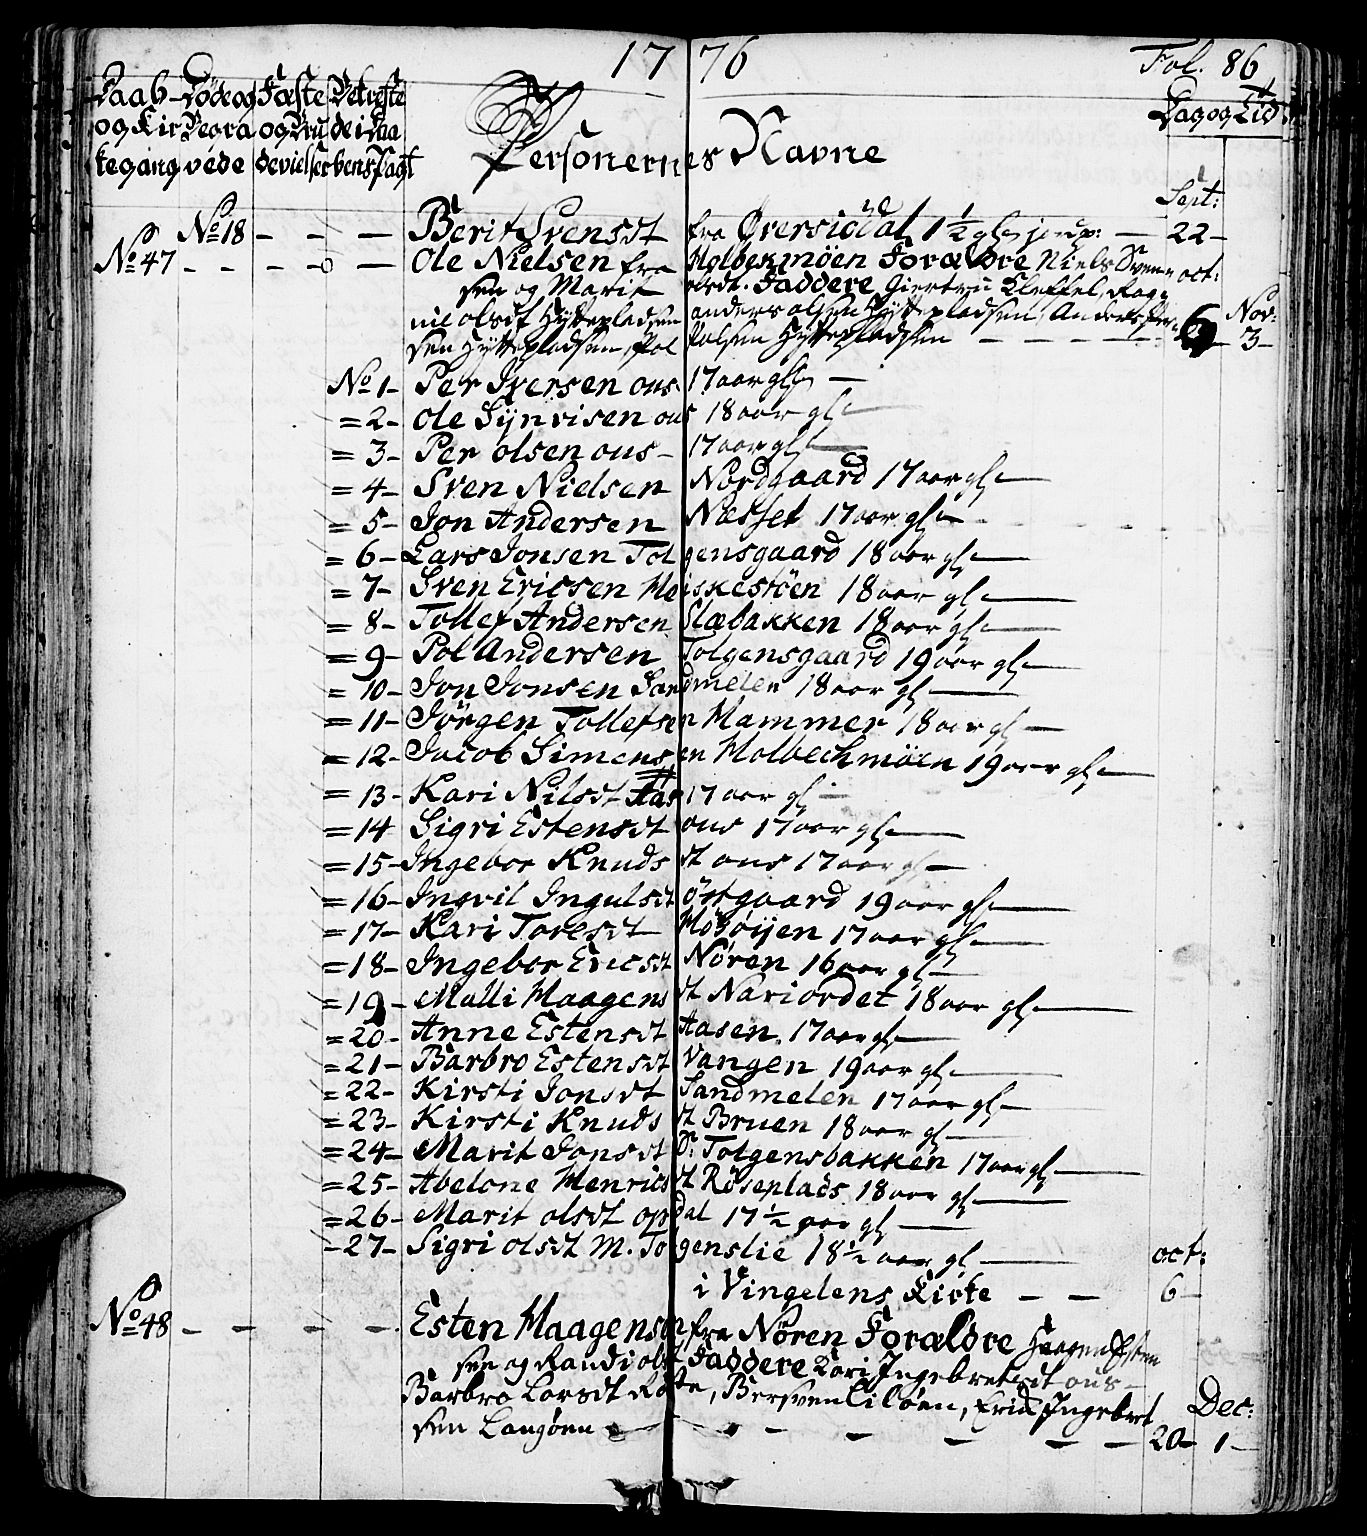 1776 Fol. 86
Daab- Døde og Fæste Bekræfte Dag og Tid
og Kir Begra og Bru de i Daa Personernes Navne
kegang vede devielser bens Pagt
Sept:
No 18 - - - Berit Svensdt fra Øversiødal 1½ gl. - 22-
No 47 - - - - Ole Nielsen fra Holbekmöen Forældre Niels Sven oct:
sen og Marit olsdt. Faddere Giertru Kleffel, Rag
nil olsdt Hyttepladsen anders olsen Hyttepladsen, Anders 6 Nov:
sen Hyttepladsen, Pol Polsen Hyttepladsen - - - - - 3-
No 1- Per Iversen ous 17 aar gl. -
= 2- Ole Sÿnvisen ous 18 aar gl.
= 3- Per olsen ous- 17 aar gl.
= 4- Sven Nielsen Nordgaard 17 aar gl.
= 5- Jon Andersen Næsset 17 aar gl.
= 6- Lars Jonsen Tolgensgaard 18 aar gl.
= 7- Sven Ericsen 18 aar gl.
= 8- Tollef Andersen Slæbakken 18 aar gl.
= 9- Pol Andersen Tolgensgaard 19 aar gl.
= 10- Jon Jonsen Sandmelen 18 aar gl.
= 11- Jörgen Tollefsen Hammer 18 aar gl.
= 12- Jacob Simensen Holbechmöen 19 aar gl.
= 13- Kari Nilsdt Aas 17 aar gl.
= 14 Sigri Estensdt ous 17 aar gl.
= 15- Ingebor Knudsdt ous 17 aar gl.
= 16- Ingvil Ingulsdt östgaard 19 aar gl.
= 17- Kari Toresdt Moseöyen 17 aar gl.
= 18- Ingebor Ericsdt Nören 16 aar gl.
= 19- Malli Haagensdt Nariordet 18 aar gl.
= 20- Anne Estensdt Aasen 17 aar gl.
= 21- Barbro Estensdt Vangen 19 aar gl.
= 22- Kirsti Jonsdt Sandmelen 17 aar gl.
= 23- Kirsti Knudsdt Bruen 18 aar gl.
= 24- Marit Jonsdt Tolgensbakken 17 aar gl.
= 25- Abelone Henricsdt Röseplads 18 aar gl.
= 26- Marit olsdt opdal 17½ aar gl.
- 27- Sigri olsdt M. Tolgenslie 18½ aar gl. oct:
i Vingelens Kirke - - 6-
No 48 - - - - Esten Haagensen fra Nören Forældre Haagen Esten
sen og Randi olsdt Faddere Kari Ingebretsdt ous-
Barbro Larsdt Röste, Bersven Lilöen, Erich Ingebret Dec:
sen Langöen - - - - - - 20- 1-